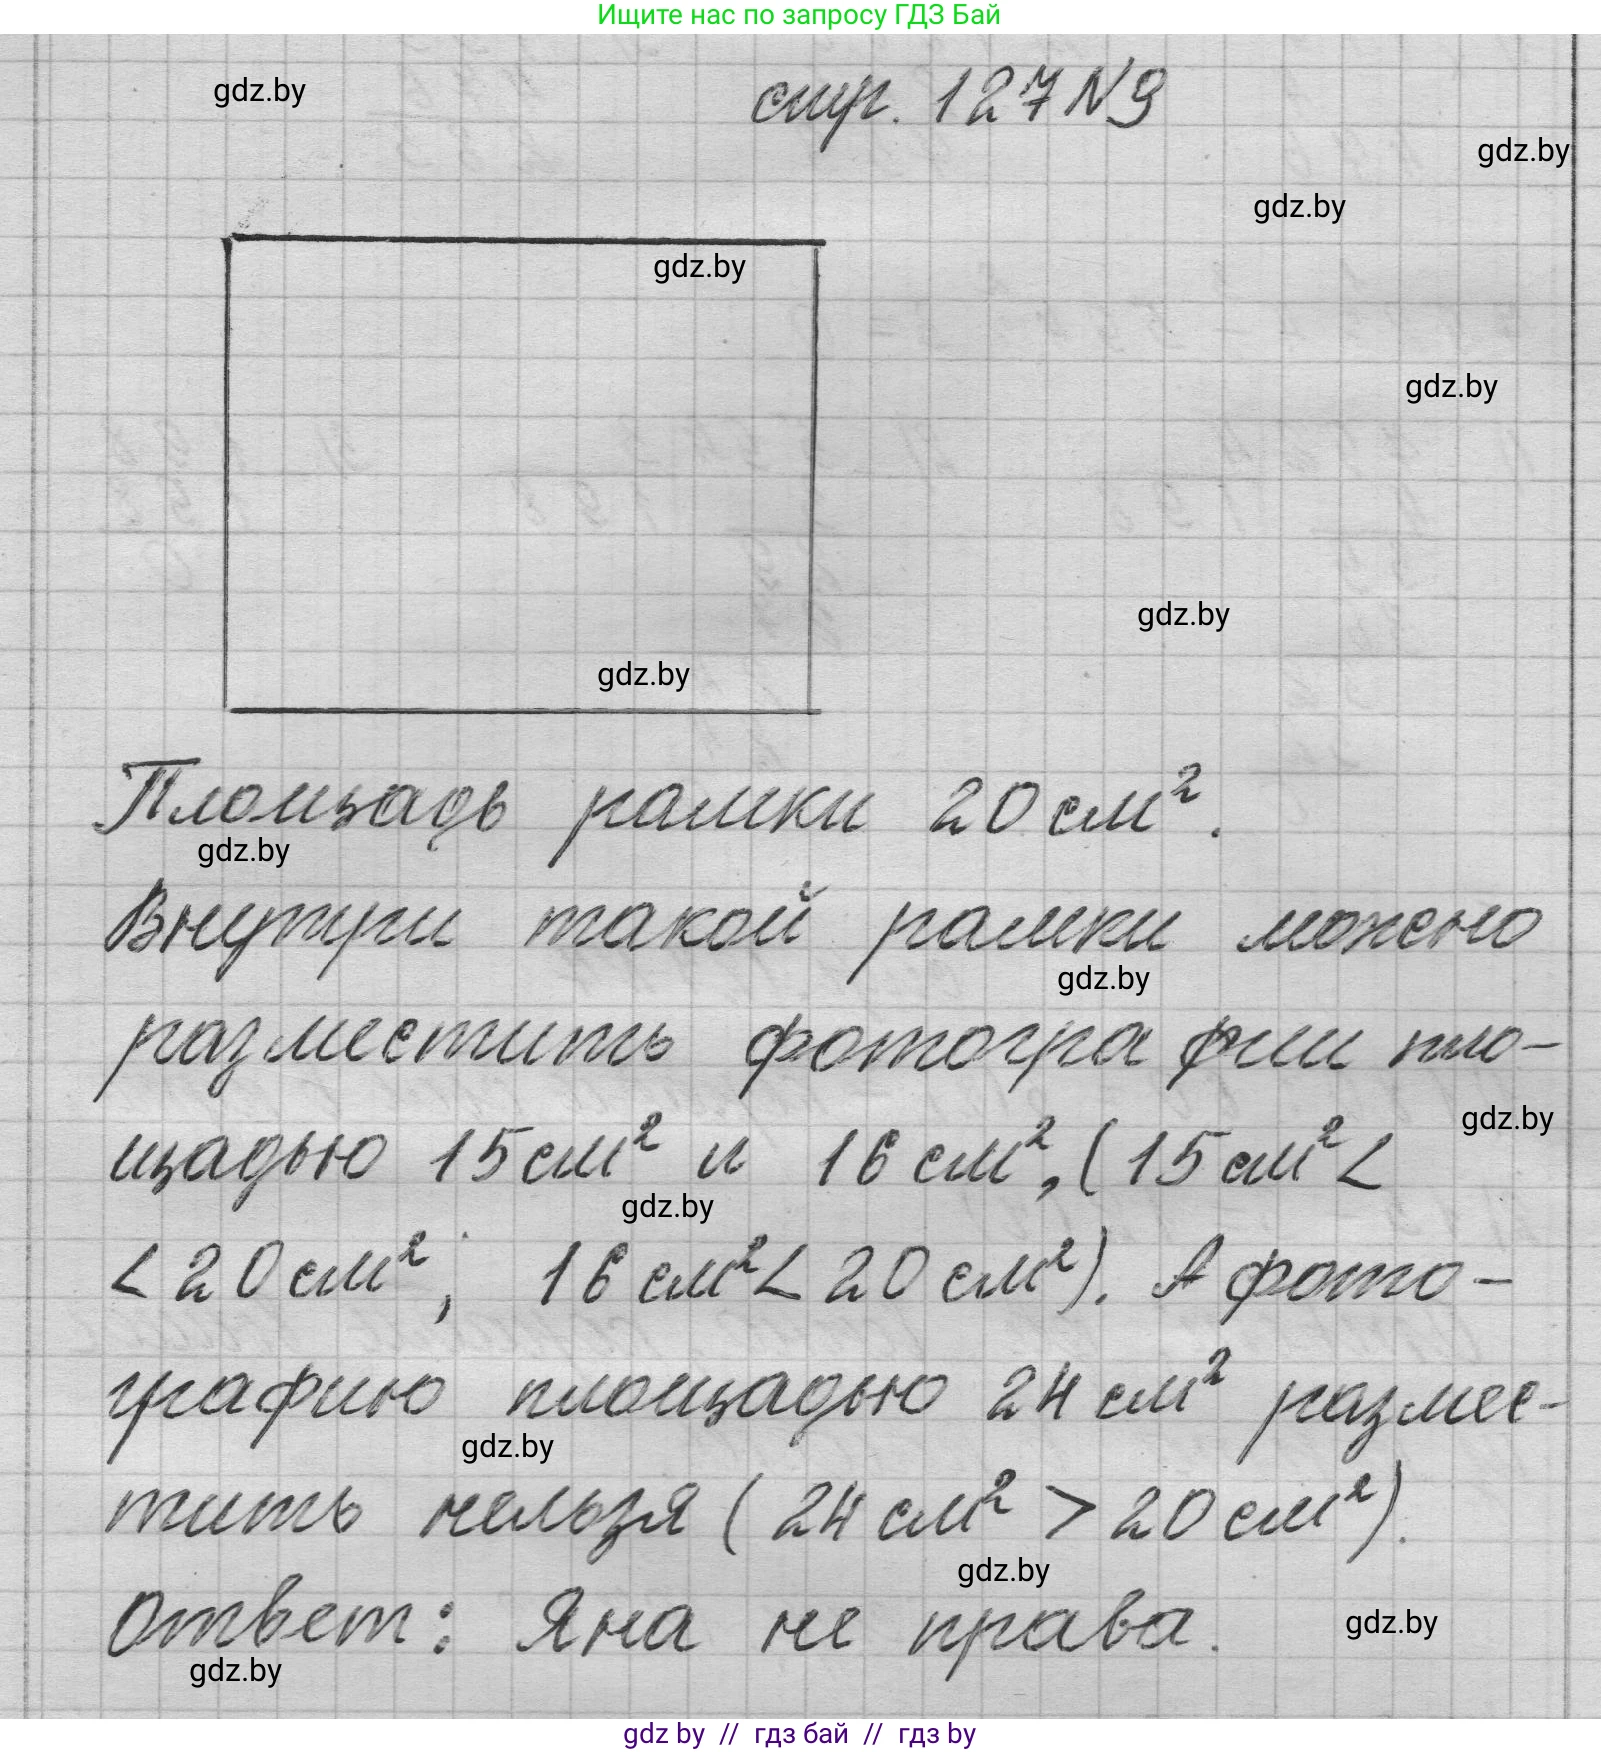 Ищите нас по запросу ГДЗ Бай
стр. 127 N9
gdz.by
gdz.by
gdz.by
gdz.by
gdz.by
gdz.by
gdz.by
Площадь рамки 20 см².
gdz.by
Внутри такой рамки можно
gdz.by
разместить фотографии пло-
gdz.by
щадью 15 см² и 16 см², (15 см² <
gdz.by
< 20 см²; 16 см² < 20 см²). А фото-
графию площадью 24 см² размес-
gdz.by
тить нельзя (24 см² > 20 см²).
gdz.by
Ответ: Яна не права.
gdz.by
gdz.by
gdz by // гдз бай // гдз by